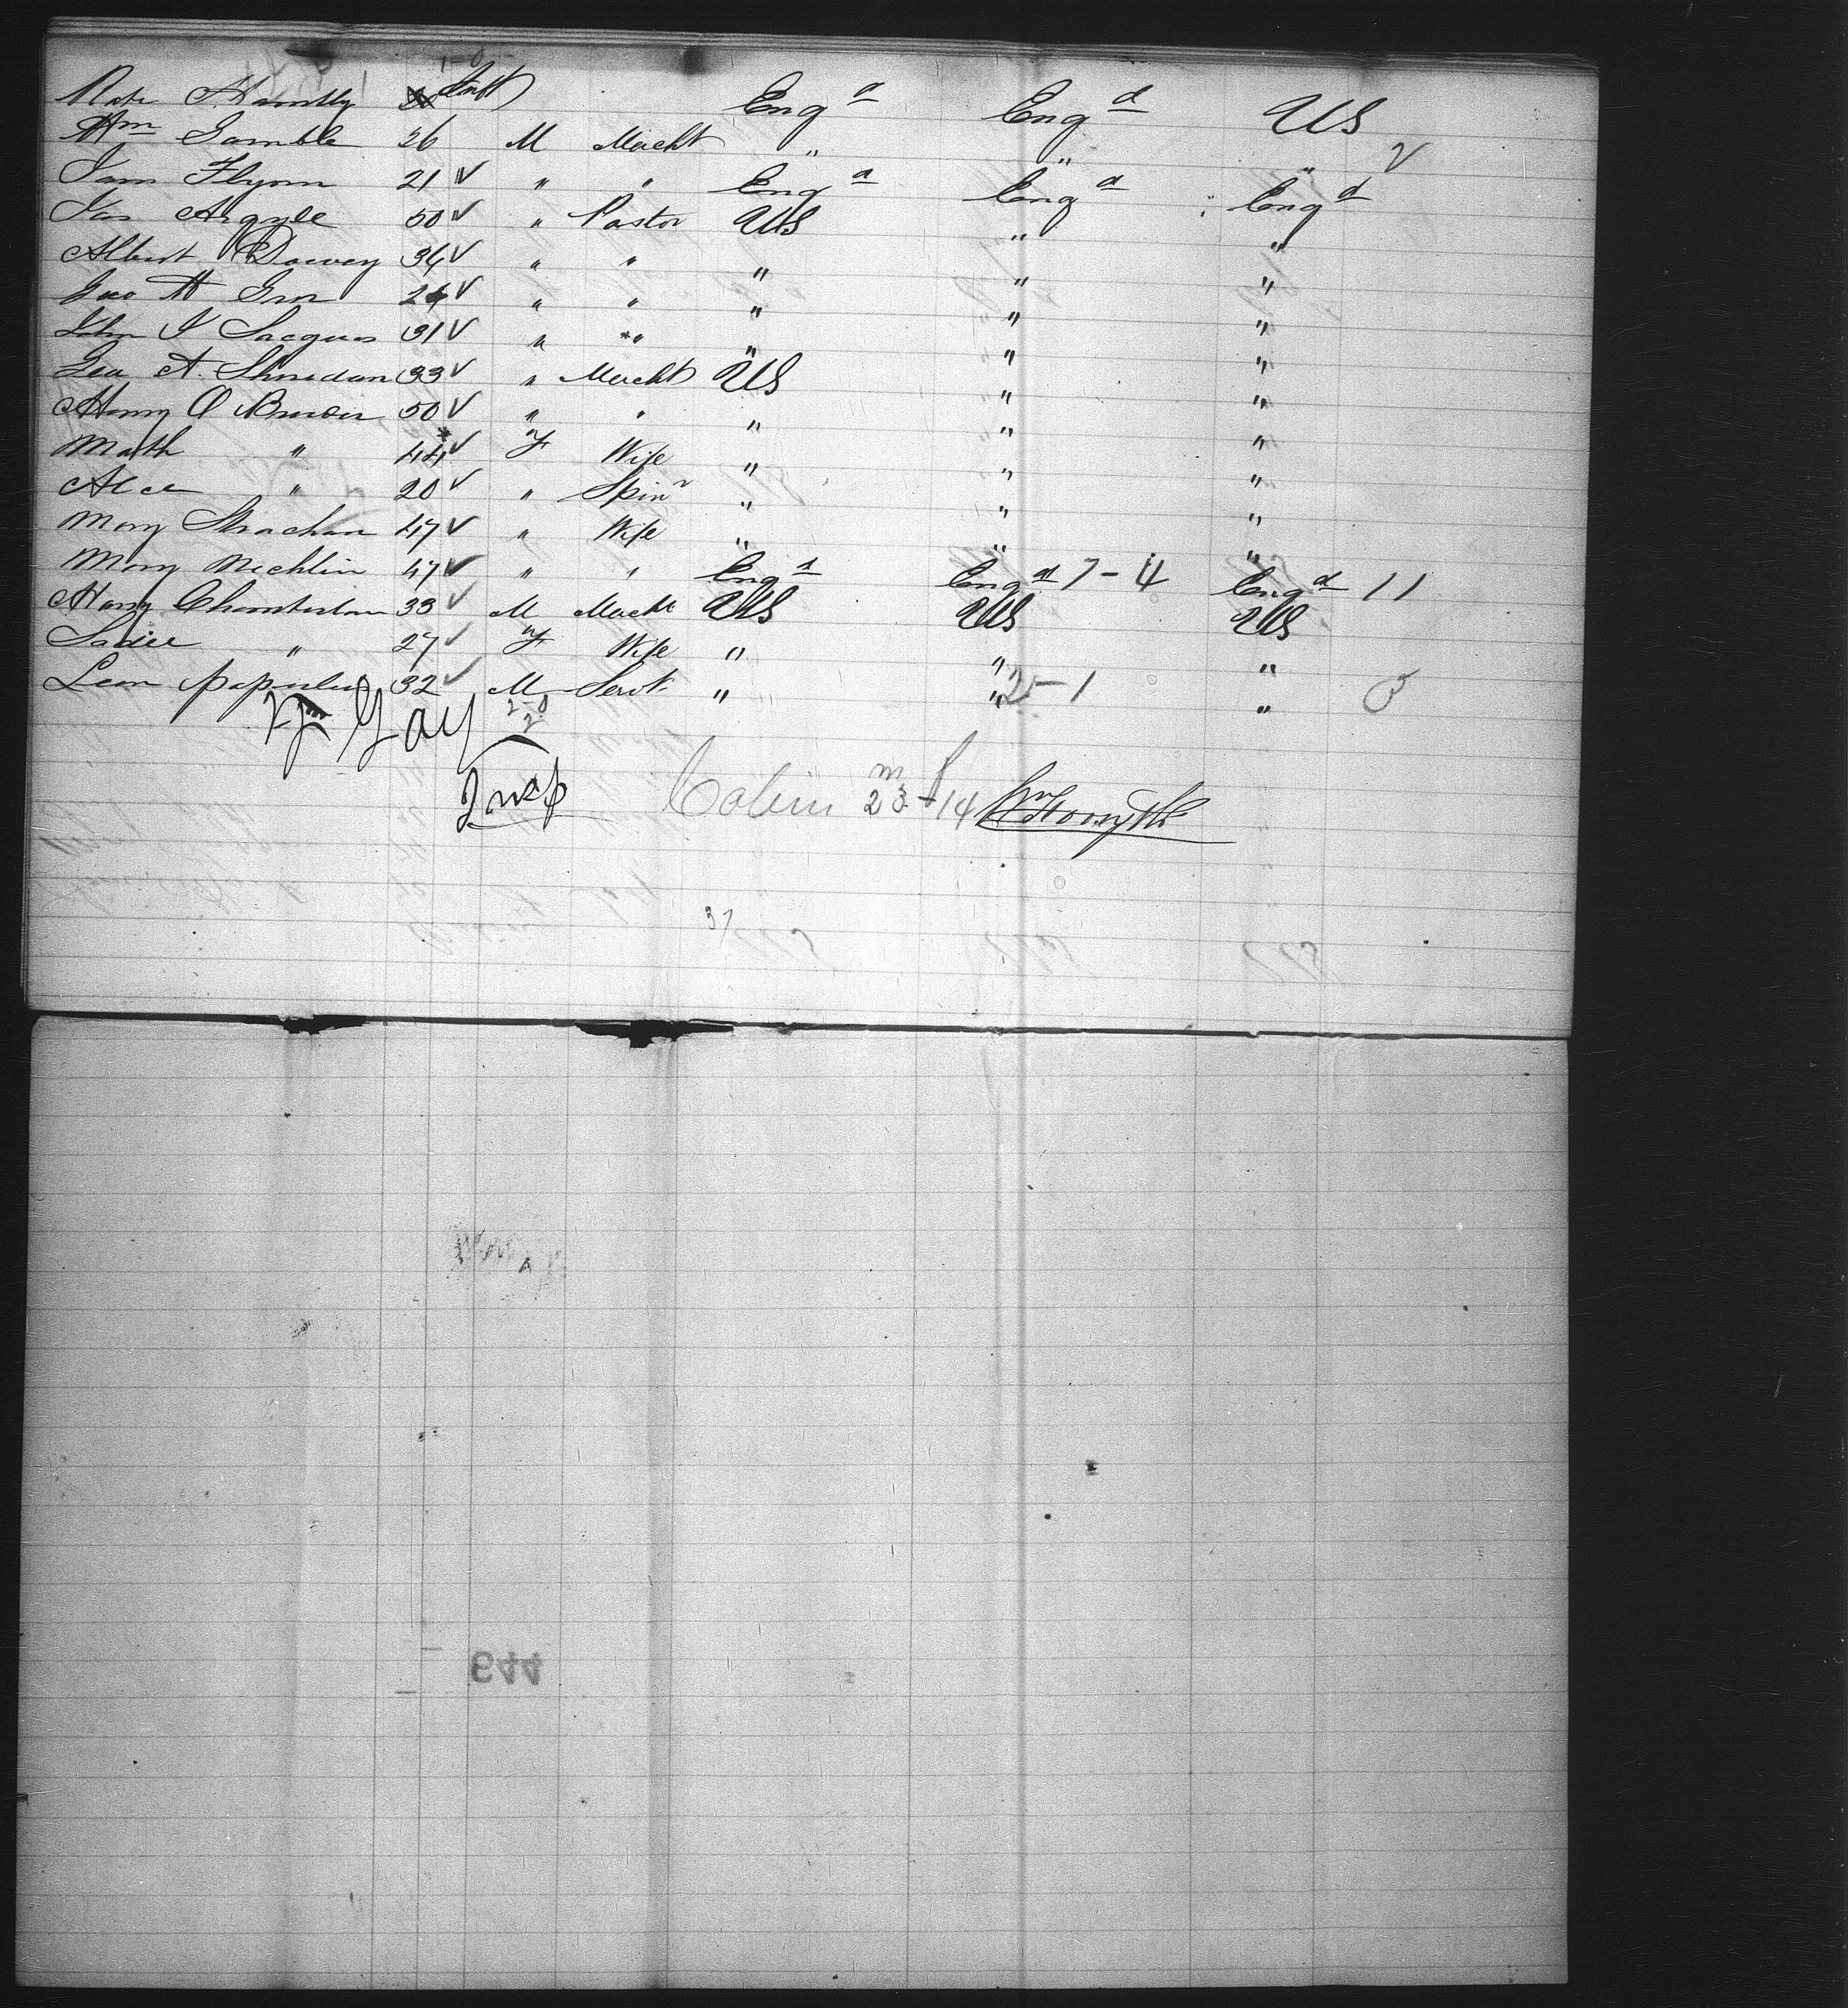 Kate Hamtly Inft Eng d Eng d US
Wm Gamble 26 M Mercht " " "
Jam Flynn 21 " " Eng d Eng d Eng d
Jas Argyle 50 " Pastor US " "
Albert Dowey 34 " " " " "
Geo H 24 " " " " "
John J Jacques 31 " " " " "
Geo A. Sheridan 33 " Mercht US " "
Harry O Brown 50 " " " " "
Math " 44 F Wife " " "
Alice " 20 " Spinr " " "
Mary Strachan 47 " Wife " " "
Mary Michlin 47 " " Eng d Eng d 7-4 Eng d 11
Harry Chamberlan 33 M Mercht US US US
Sadie " 27 F Wife " " "
Leon 32 M Servt " " 2-1 "
Wm Gay 2-0
Insp Cabin m 23 - f 14 Wm Forsyth
37
644